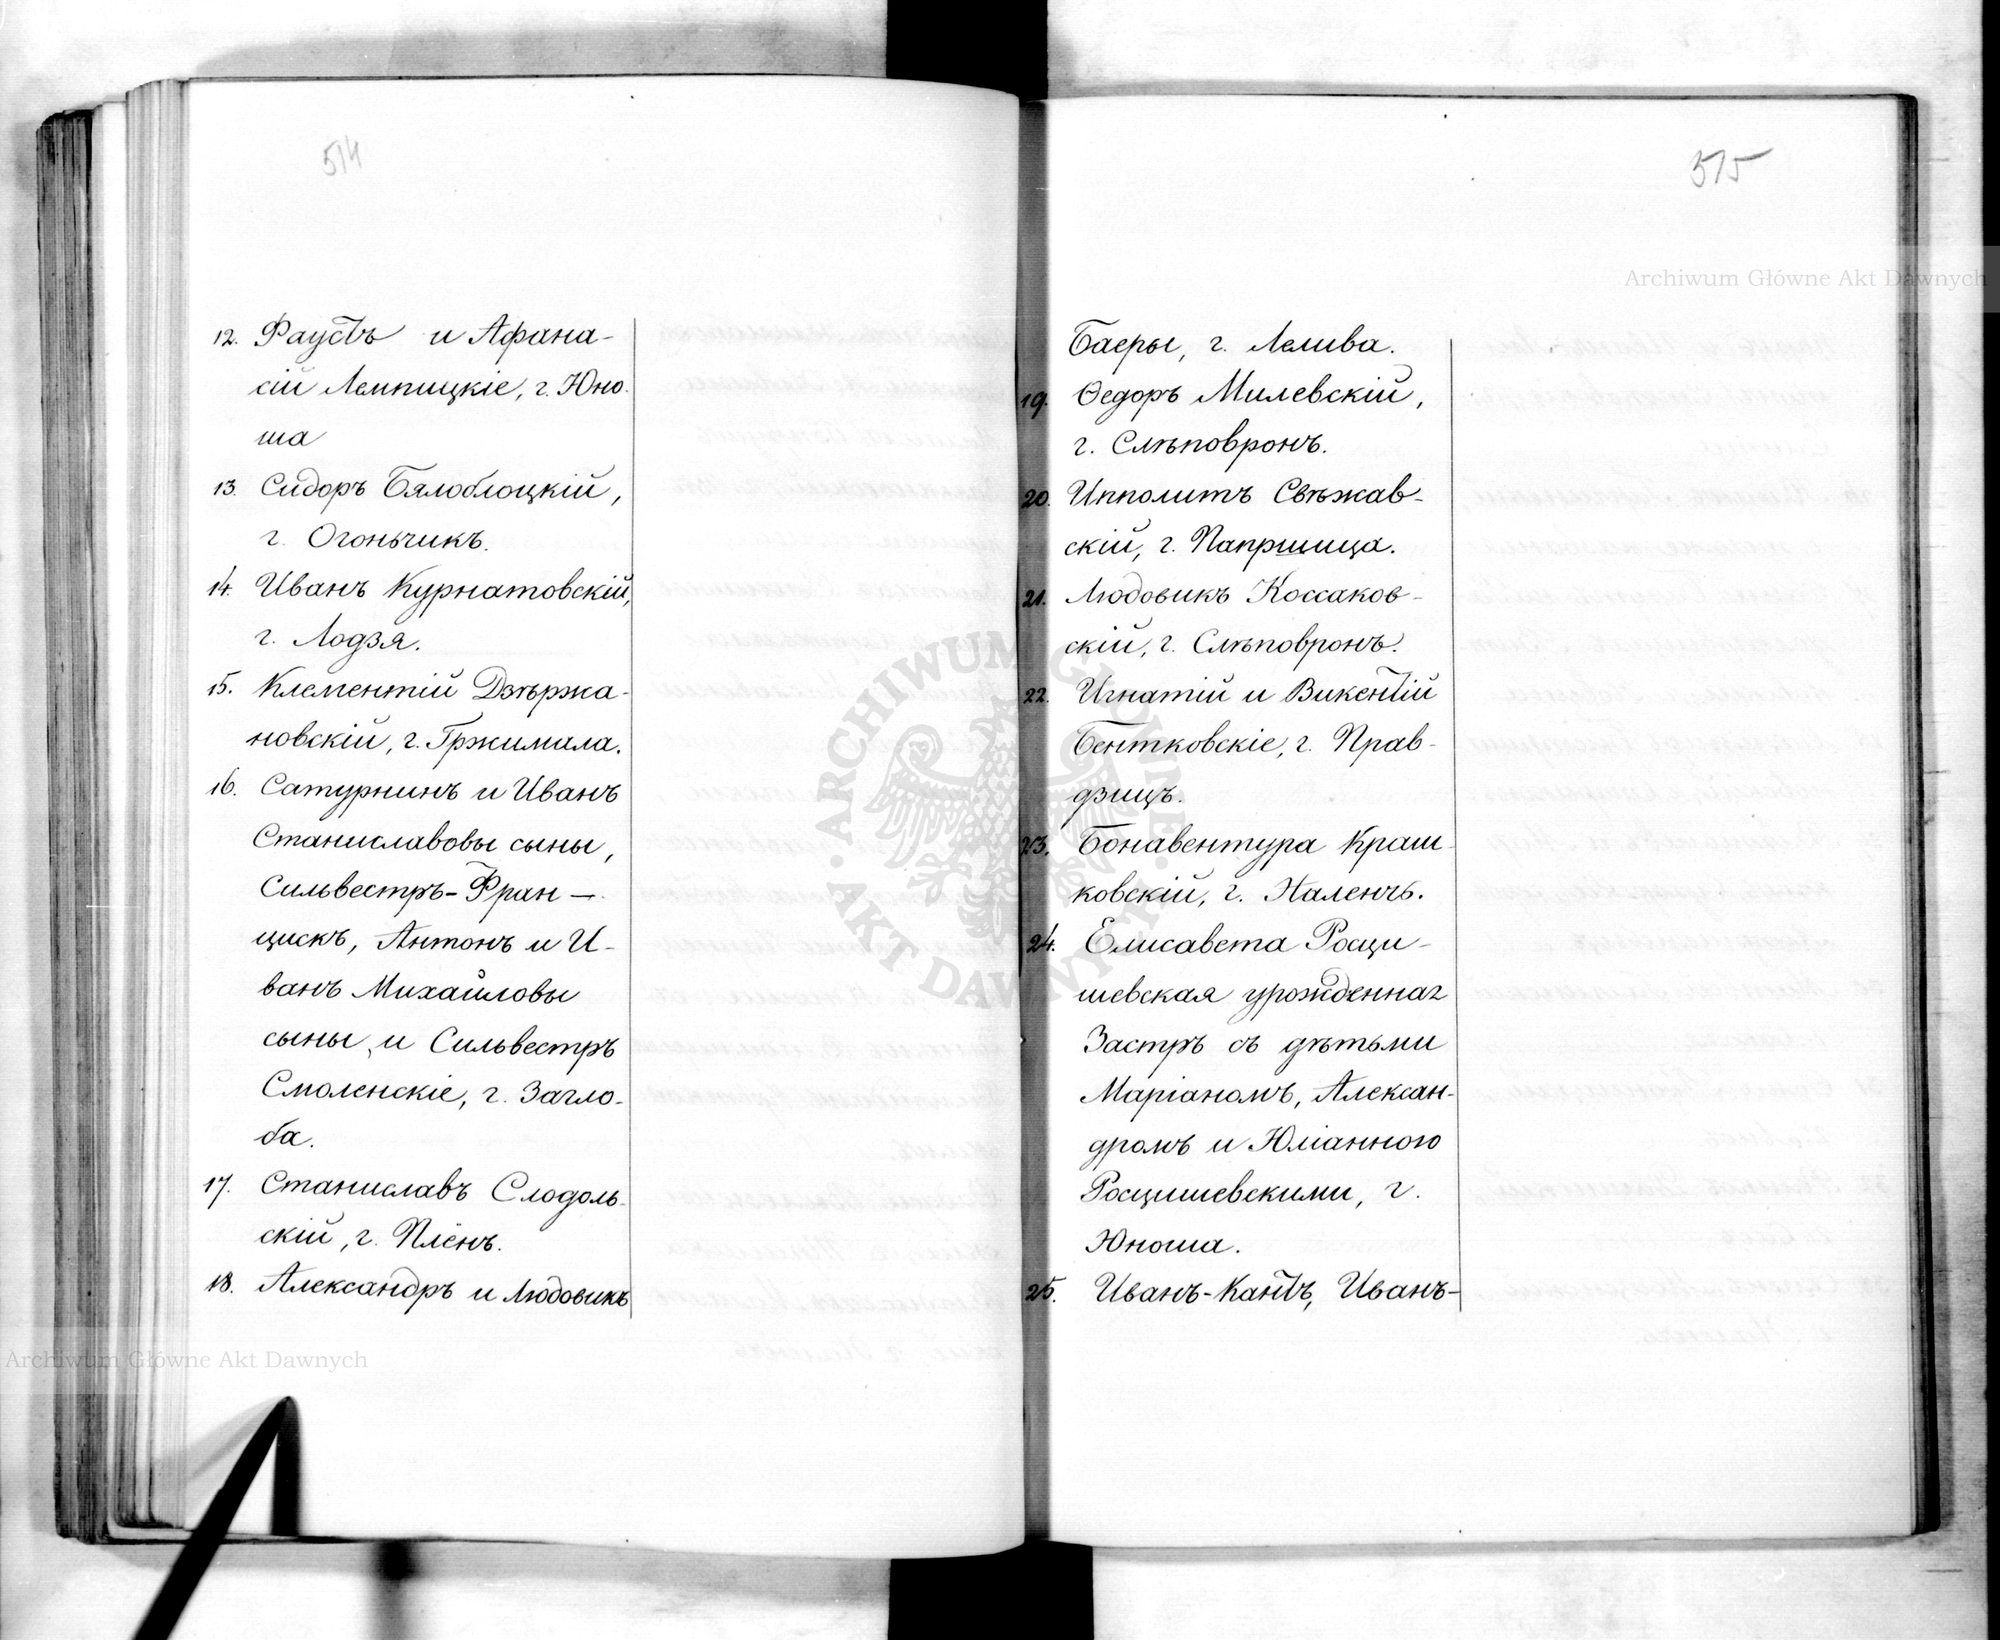 514
12. Фаустъ и Афана-
сій Лемпицкіе, г. Юно-
ша
13. Сидоръ Бялоблоцкій,
г. Огоньчикъ.
14. Иванъ Курнатовскій,
г. Лодзя.
15. Клементій Дзѣржа-
новскій, г. Гржимала.
16. Сатурнинъ и Иванъ
Станиславовы сыны,
Сильвестръ-Фран-
цискъ, Антонъ и И-
ванъ Михайловы
сыны, и Сильвестръ
Смоленскіе, г. Загло-
ба.
17. Станиславъ Слодоль-
скій, г. Плёнъ.
18. Александръ и Людовикъ
575
Баеры, г. Лелива.
19. Ѳедоръ Милевскій,
г. Слѣповронъ.
20. Ипполитъ Свѣжав-
скій, г. Папршица.
21. Людовикъ Коссаков-
скій, г. Слѣповронъ.
22. Игнатій и Викентій
Бентковскіе, г. Прав-
дзицъ.
23. Бонавентура Краш-
ковскій, г. Наленчъ.
24. Елисавета Росци-
шевская урожденная
Застръ съ дѣтьми
Маріаномъ, Алексан-
дромъ и Юліанною
Росцишевскими, г.
Юноша.
25. Иванъ-Кантъ, Иванъ-
Archiwum Główne Akt Dawnych
Archiwum Główne Akt Dawnych
ARCHIWUM GŁÓWNE AKT DAWNYCH